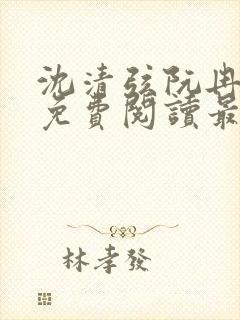 沈清弦阮冉
免費閱讀最
林孝發